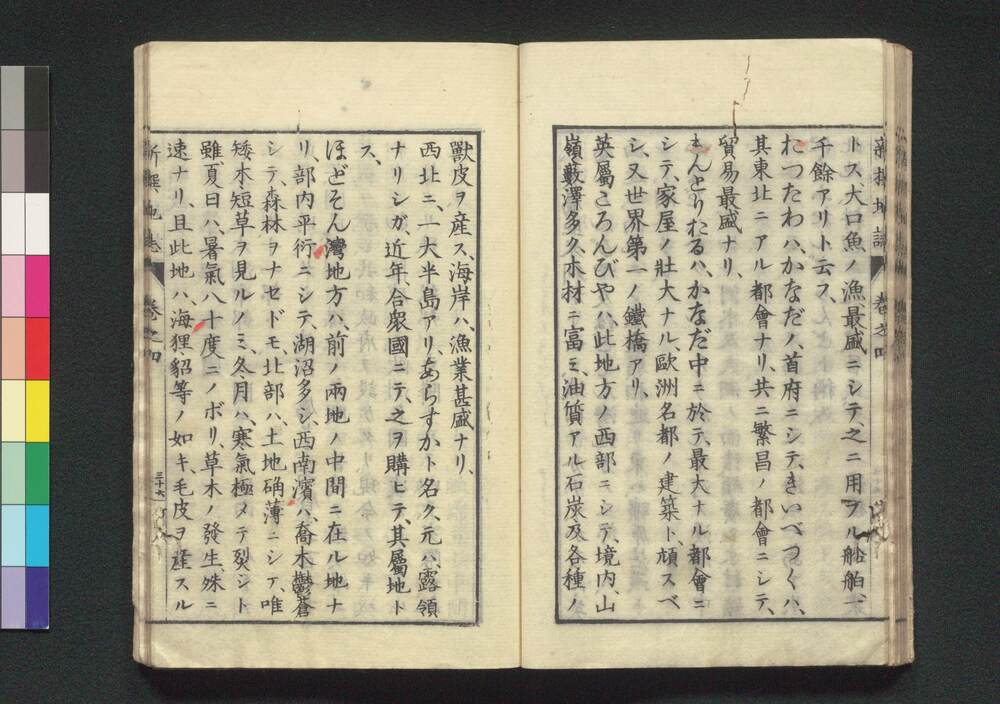 新撰地誌 卷之四
トス、大口魚ノ漁最盛ニシテ、之ニ用フル船舶、一
千餘アリト云フ、
おつたわハ、かなだノ、首府ニシテ、きいべつくハ、
其東北ニアル都會ナリ、共ニ繁昌ノ都會ニシテ、
貿易最盛ナリ、
もんとりたるハ、かなだ中ニ於テ、最大ナル都會ニ
シテ、家屋ノ壯大ナル、歐洲名都ノ建築ト、頑スベ
シ、又世界第一ノ鐵橋アリ、
英屬ころんびやハ、此地方ノ西部ニシテ、境内、山
嶺藪澤多ク、木材ニ富ミ、油質アル石炭及各種ノ
獸皮ヲ産ス、海岸ハ、漁業甚盛ナリ、
西北ニ、一大半島アリ、あらすかト名ク、元ハ、露領
ナリシガ、近年、合衆國ニテ、之ヲ購ヒテ、其屬地ト
ス、
ほどそん灣地方ハ、前ノ兩地ノ中間ニ在ル地ナ
リ、部内平衍ニシテ、湖沼多シ、西南濱ハ、喬木鬱蒼
シテ、森林ヲナセドモ、北部ハ、土地确薄ニシテ、唯
矮木短草ヲ見ルノミ、冬月ハ、寒氣極メテ裂シト
雖、夏日ハ、暑氣八十度ニノボリ、草木ノ發生、殊ニ
速ナリ、且此地ハ、海狸貂等ノ如キ、毛皮ヲ産スル
新撰地誌 卷之四 三十六